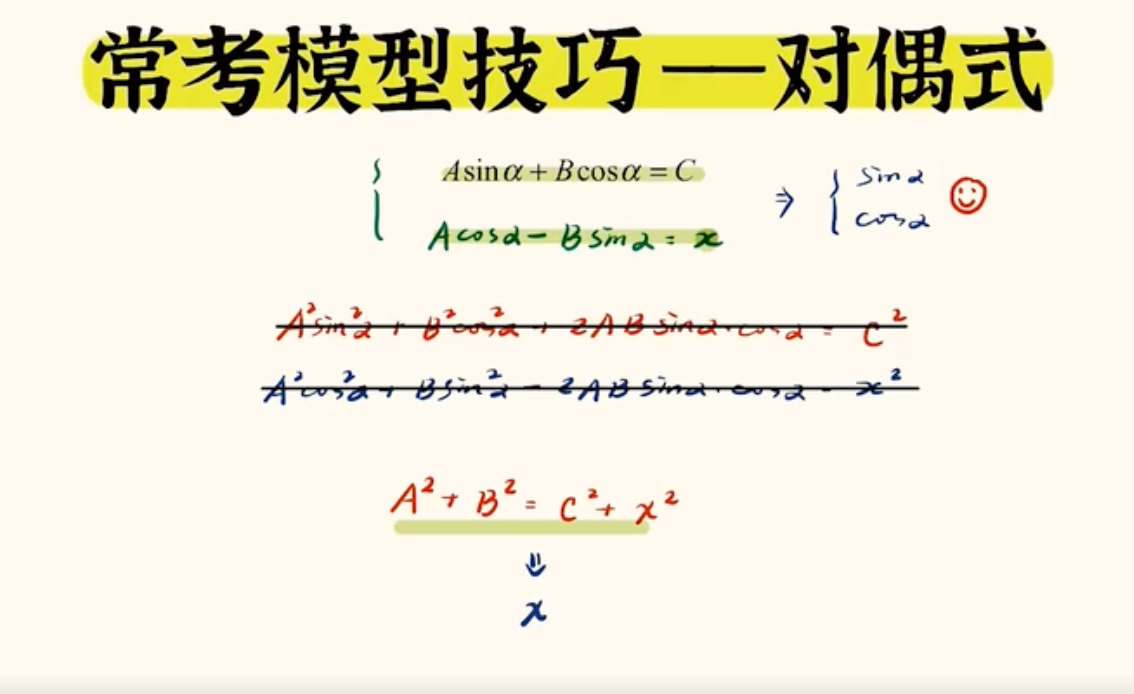 常考模型技巧—对偶式
Asinα + Bcosα = C
⇒ { sinα
cosα
Acosα - Bsinα = x
A²sin²α + B²cos²α + 2ABsinα·cosα = C²
A²cos²α + Bsin²α - 2ABsinα·cosα = x²
A² + B² = C² + x²
⇓
x